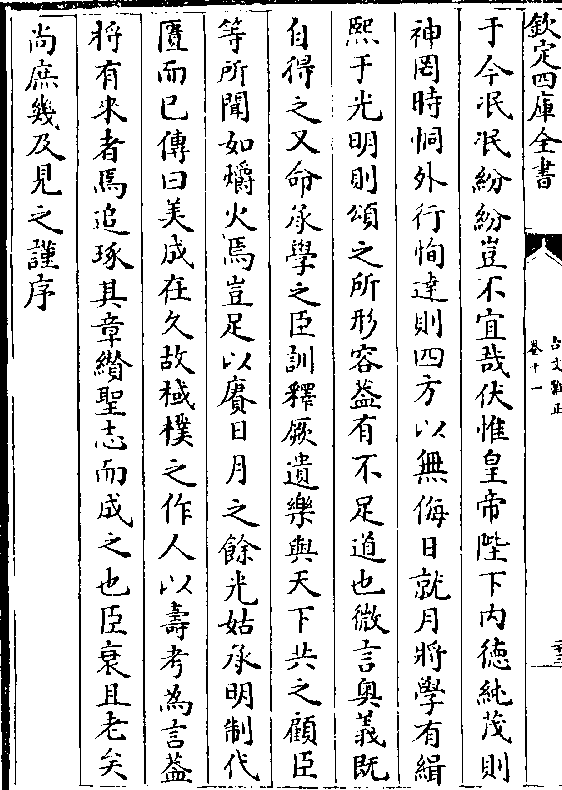 欽定四庫全書
古文雅正
卷十一
于今泯泯紛紛豈不宜哉伏惟皇帝陛下内徳純茂則
神罔時恫外行恂達則四方以無侮日就月將學有緝
熙于光明則頌之所形容葢有不足道也微言奥義既
自得之又命承學之臣訓釋厥遺樂與天下共之顧臣
等所聞如爝火焉豈足以賡日月之餘光姑承明制代
匱而已傳曰美成在久故棫樸之作人以壽考為言葢
將有來者焉追琢其章纘聖志而成之也臣衰且老矣
尚庶幾及見之謹序